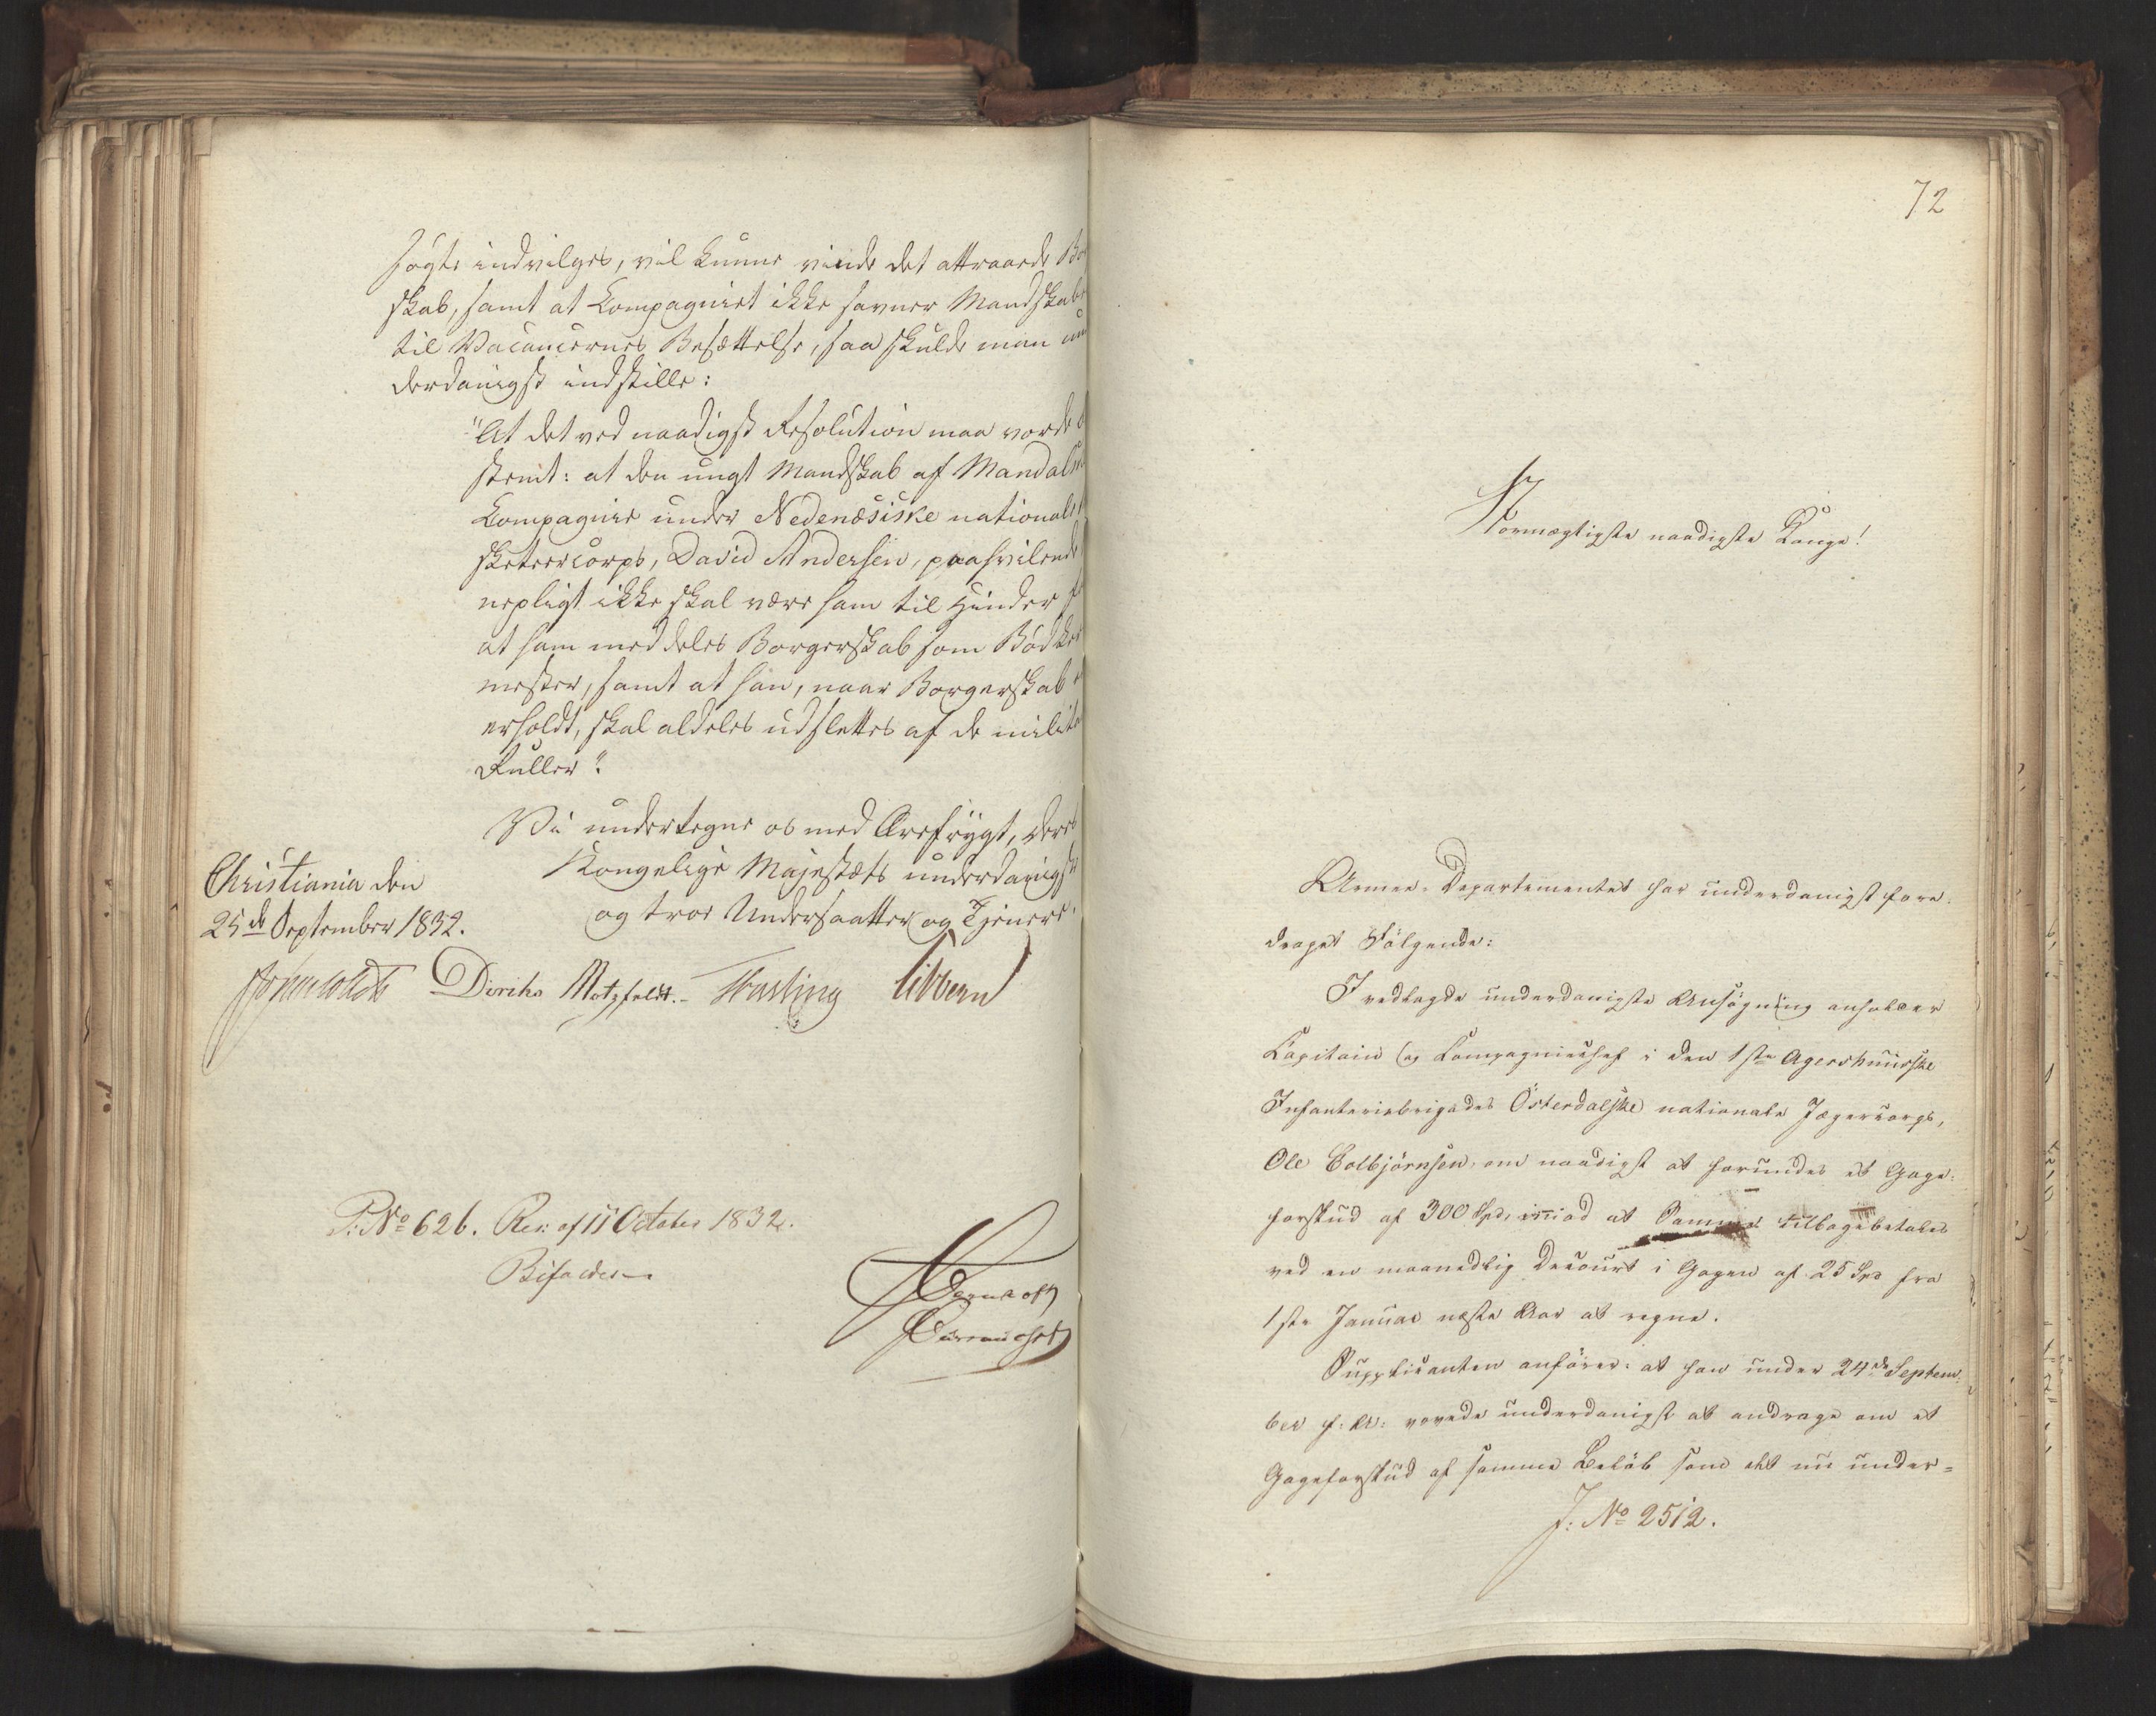 søgte indvilges, vil kunne vinde det attraaede Bor
skab, samt at Compagniet ikke savner Mandskaber
til Vacancernes Besættelse, saa skulde man un
derdanigst indstille:
"At det ved naadigst Resolution maa vorde be
stemt: at den ungt Mandskab af Mandalske
Compagnie under Nedenæsiske nationale
sketeercorps, David Andersen, paahvilende
nepligt ikke skal være ham til Hinder for
at ham meddeles Borgerskab som Bødker
mester, samt at han, naar Borgerskab er
erholdt, skal aldeles udslettes af de milita
Ruller".
Vi undertegne os med Ærefrygt, Deres
Kongelige Majestæts underdanigste
og troe Undersaatter og Tjenere.
Christiania den
25de September 1832.
Diriks Motzfeldt. Fasting Sibbern
P: No 626. Res: af 11 October 1832.
Bifaldes
72
Stormægtigste naadigste Konge!
Armee-Departementet har underdanigst fore-
draget Følgende:
I vedlagde underdanigste Ansøgning anholder
Capitain og Compagniechef i den 1ste Agershuusske
Infanteriebrigades Østerdalske nationale Jægercorps,
Ole Colbjørnsen, om naadigst at forundes et Gage-
forskud af 300 Spd, imod at Samme tilbagebetales
ved en maanedlig Decourt i Gagen af 25 Spd fra
1ste Januar næste Aar at regne.
Supplicanten anfører: at han under 24de Septem-
ber f: A: vovede underdanigst at andrage om et
Gageforskud af samme Beløb som det nu under-
J: No 2512.